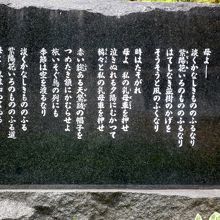 母よ――
淡くかなしきもののふるなり
紫陽花いろのもののふるなり
はてしなき並樹のかげを
そうそうと風のふくなり
時はたそがれ
母よ 私の乳母車を押せ
泣きぬれる夕陽にむかつて
轔々と私の乳母車を押せ
赤い総ある天鵞絨の帽子を
つめたき額にかむらせよ
旅いそぐ鳥の列にも
季節は空を渡るなり
淡くかなしきもののふる
紫陽花いろのもののふる道